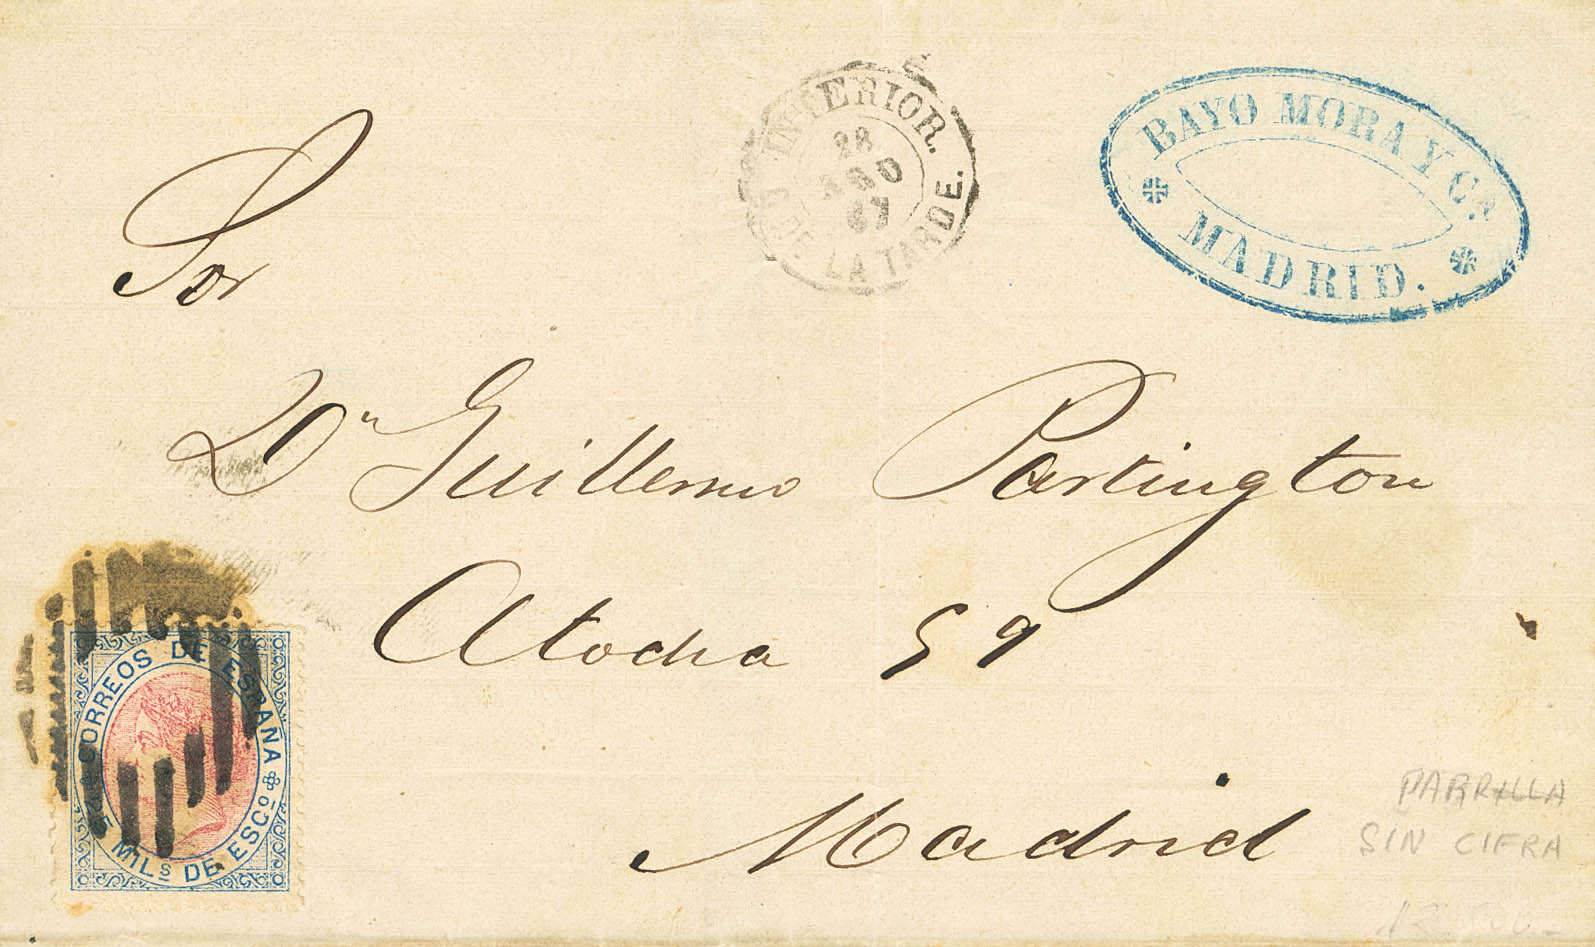 INTERIOR.
28
AGO
67
DE LA TARDE.
BAYO MORA Y Cª
MADRID.
Sor
Dn Guillermo Partington
Atocha 59
Madrid
CORREOS DE ESPAÑA
25 MILs DE ESCo
PARRILLA
SIN CIFRA